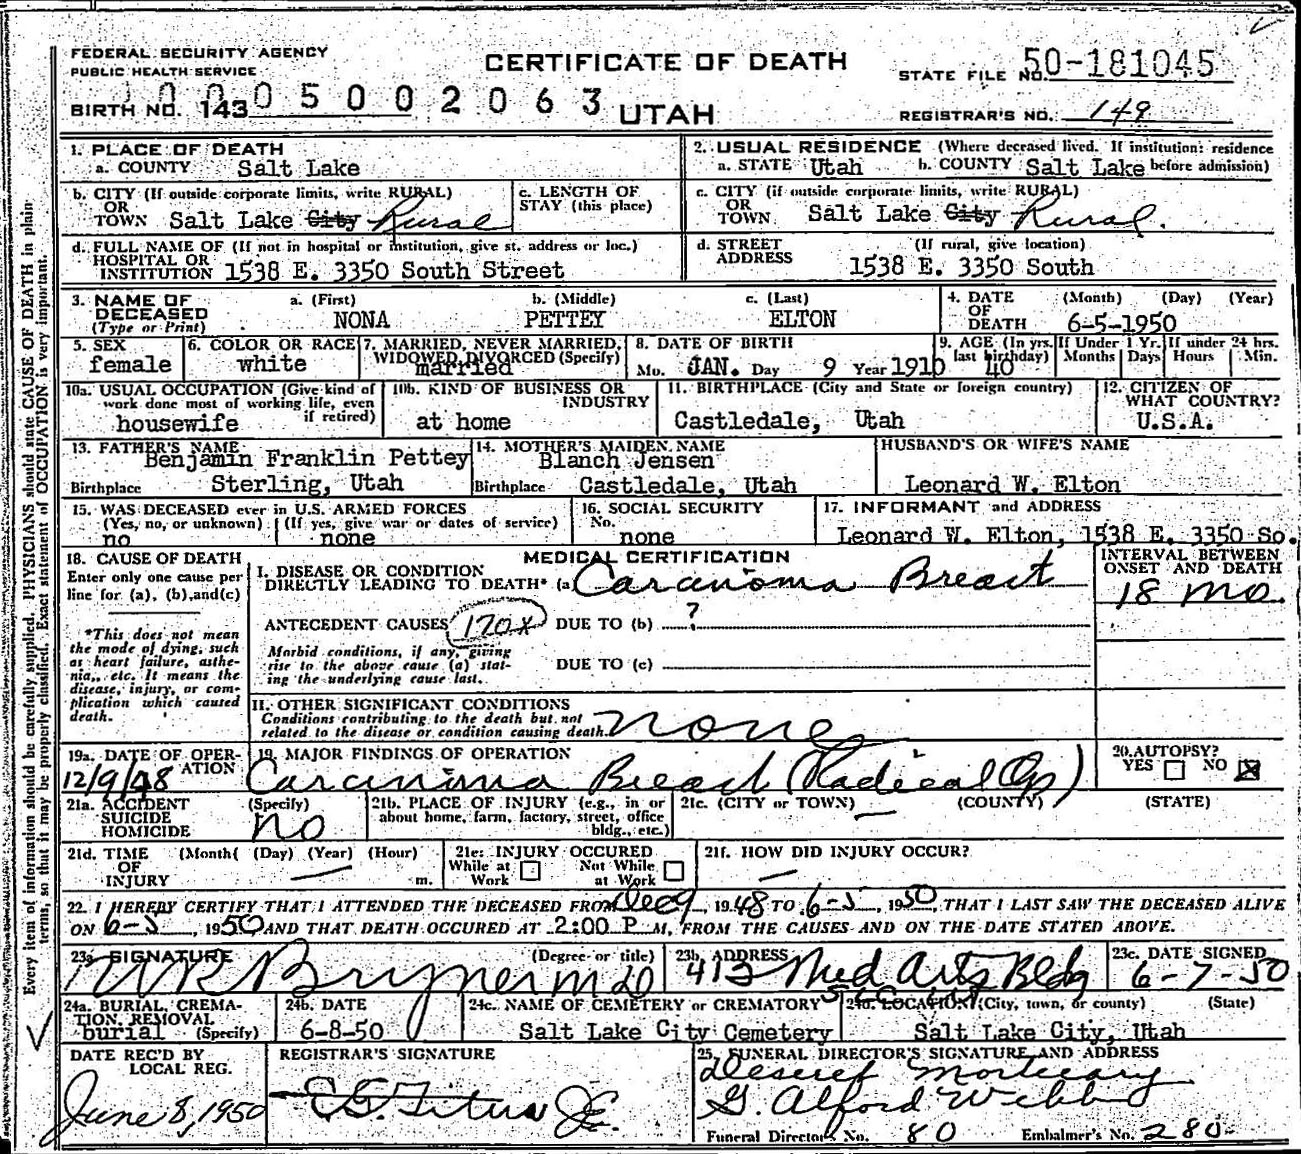 FEDERAL SECURITY AGENCY
PUBLIC HEALTH SERVICE
CERTIFICATE OF DEATH
STATE FILE NO. 50-181045
BIRTH NO. 143 0 0 5 0 0 2 0 6 3
UTAH
REGISTRAR'S NO. 149
1. PLACE OF DEATH
a. COUNTY Salt Lake
2. USUAL RESIDENCE (Where deceased lived. If institution: residence before admission)
a. STATE Utah b. COUNTY Salt Lake
b. CITY (If outside corporate limits, write RURAL) OR TOWN Salt Lake City Rural
c. LENGTH OF STAY (this place)
c. CITY (if outside corporate limits, write RURAL) OR TOWN Salt Lake City Rural.
d. FULL NAME OF (If not in hospital or institution, give st. address or loc.)
HOSPITAL OR INSTITUTION 1538 E. 3350 South Street
d. STREET ADDRESS (If rural, give location)
1538 E. 3350 South
3. NAME OF DECEASED (Type or Print)
a. (First) b. (Middle) c. (Last)
NONA PETTEY ELTON
4. DATE OF DEATH (Month) (Day) (Year)
6-5-1950
5. SEX
female
6. COLOR OR RACE
white
7. MARRIED, NEVER MARRIED, WIDOWED, DIVORCED (Specify)
married
8. DATE OF BIRTH
Mo. JAN. Day 9 Year 1910
9. AGE (In yrs. last birthday) 40
If Under 1 Yr. Months Days
If under 24 hrs. Hours Min.
10a. USUAL OCCUPATION (Give kind of work done most of working life, even if retired)
housewife
10b. KIND OF BUSINESS OR INDUSTRY
at home
11. BIRTHPLACE (City and State or foreign country)
Castledale, Utah
12. CITIZEN OF WHAT COUNTRY?
U.S.A.
13. FATHER'S NAME
Benjamin Franklin Pettey
Birthplace Sterling, Utah
14. MOTHER'S MAIDEN NAME
Blanch Jensen
Birthplace Castledale, Utah
HUSBAND'S OR WIFE'S NAME
Leonard W. Elton
15. WAS DECEASED ever in U.S. ARMED FORCES
(Yes, no, or unknown) (If yes, give war or dates of service)
no none
16. SOCIAL SECURITY No.
none
17. INFORMANT and ADDRESS
Leonard W. Elton, 1538 E. 3350 So.
18. CAUSE OF DEATH
Enter only one cause per line for (a), (b), and (c)
*This does not mean the mode of dying, such as heart failure, asthenia, etc. It means the disease, injury, or complication which caused death.
MEDICAL CERTIFICATION
I. DISEASE OR CONDITION
DIRECTLY LEADING TO DEATH* (a) Carcinoma Breast
INTERVAL BETWEEN ONSET AND DEATH
18 mo.
ANTECEDENT CAUSES 170x DUE TO (b) ?
Morbid conditions, if any, giving rise to the above cause (a) stating the underlying cause last.
DUE TO (c)
II. OTHER SIGNIFICANT CONDITIONS
Conditions contributing to the death but not related to the disease or condition causing death.
none
19a. DATE OF OPERATION
12/9/48
19. MAJOR FINDINGS OF OPERATION
Carcinoma Breast (Radical Op)
20. AUTOPSY?
YES NO
21a. ACCIDENT SUICIDE HOMICIDE (Specify)
no
21b. PLACE OF INJURY (e.g., in or about home, farm, factory, street, office bldg., etc.)
21c. (CITY or TOWN) (COUNTY) (STATE)
21d. TIME OF INJURY (Month) (Day) (Year) (Hour) m.
21e: INJURY OCCURED
While at Work Not While at Work
21f. HOW DID INJURY OCCUR?
22. I HEREBY CERTIFY THAT I ATTENDED THE DECEASED FROM Dec 9, 1948 TO 6-5, 1950, THAT I LAST SAW THE DECEASED ALIVE
ON 6-5, 1950 AND THAT DEATH OCCURED AT 2:00 P M, FROM THE CAUSES AND ON THE DATE STATED ABOVE.
23a. SIGNATURE (Degree or title)
WR Bryner MD
23b. ADDRESS
413 Med Arts Bldg
23c. DATE SIGNED
6-7-50
24a. BURIAL, CREMATION, REMOVAL (Specify)
burial
24b. DATE
6-8-50
24c. NAME OF CEMETERY or CREMATORY
Salt Lake City Cemetery
24d. LOCATION (City, town, or county) (State)
Salt Lake City, Utah
DATE REC'D BY LOCAL REG.
June 8, 1950
REGISTRAR'S SIGNATURE
25. FUNERAL DIRECTOR'S SIGNATURE AND ADDRESS
Deseret Mortuary
G. Alford Webb
Funeral Director's No. 80 Embalmer's No. 280
Every item of information should be carefully supplied. PHYSICIANS should state CAUSE OF DEATH in plain
terms, so that it may be properly classified. Exact statement of OCCUPATION is very important.